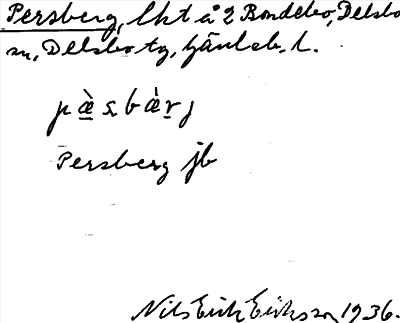 Persberg, lht å 2 Bondebo, Delsbo
sn, Delsbo tg, Gävleb. l.
pæ̀sbàrj
Persberg jb
Nils Erik Eriksson 1936.